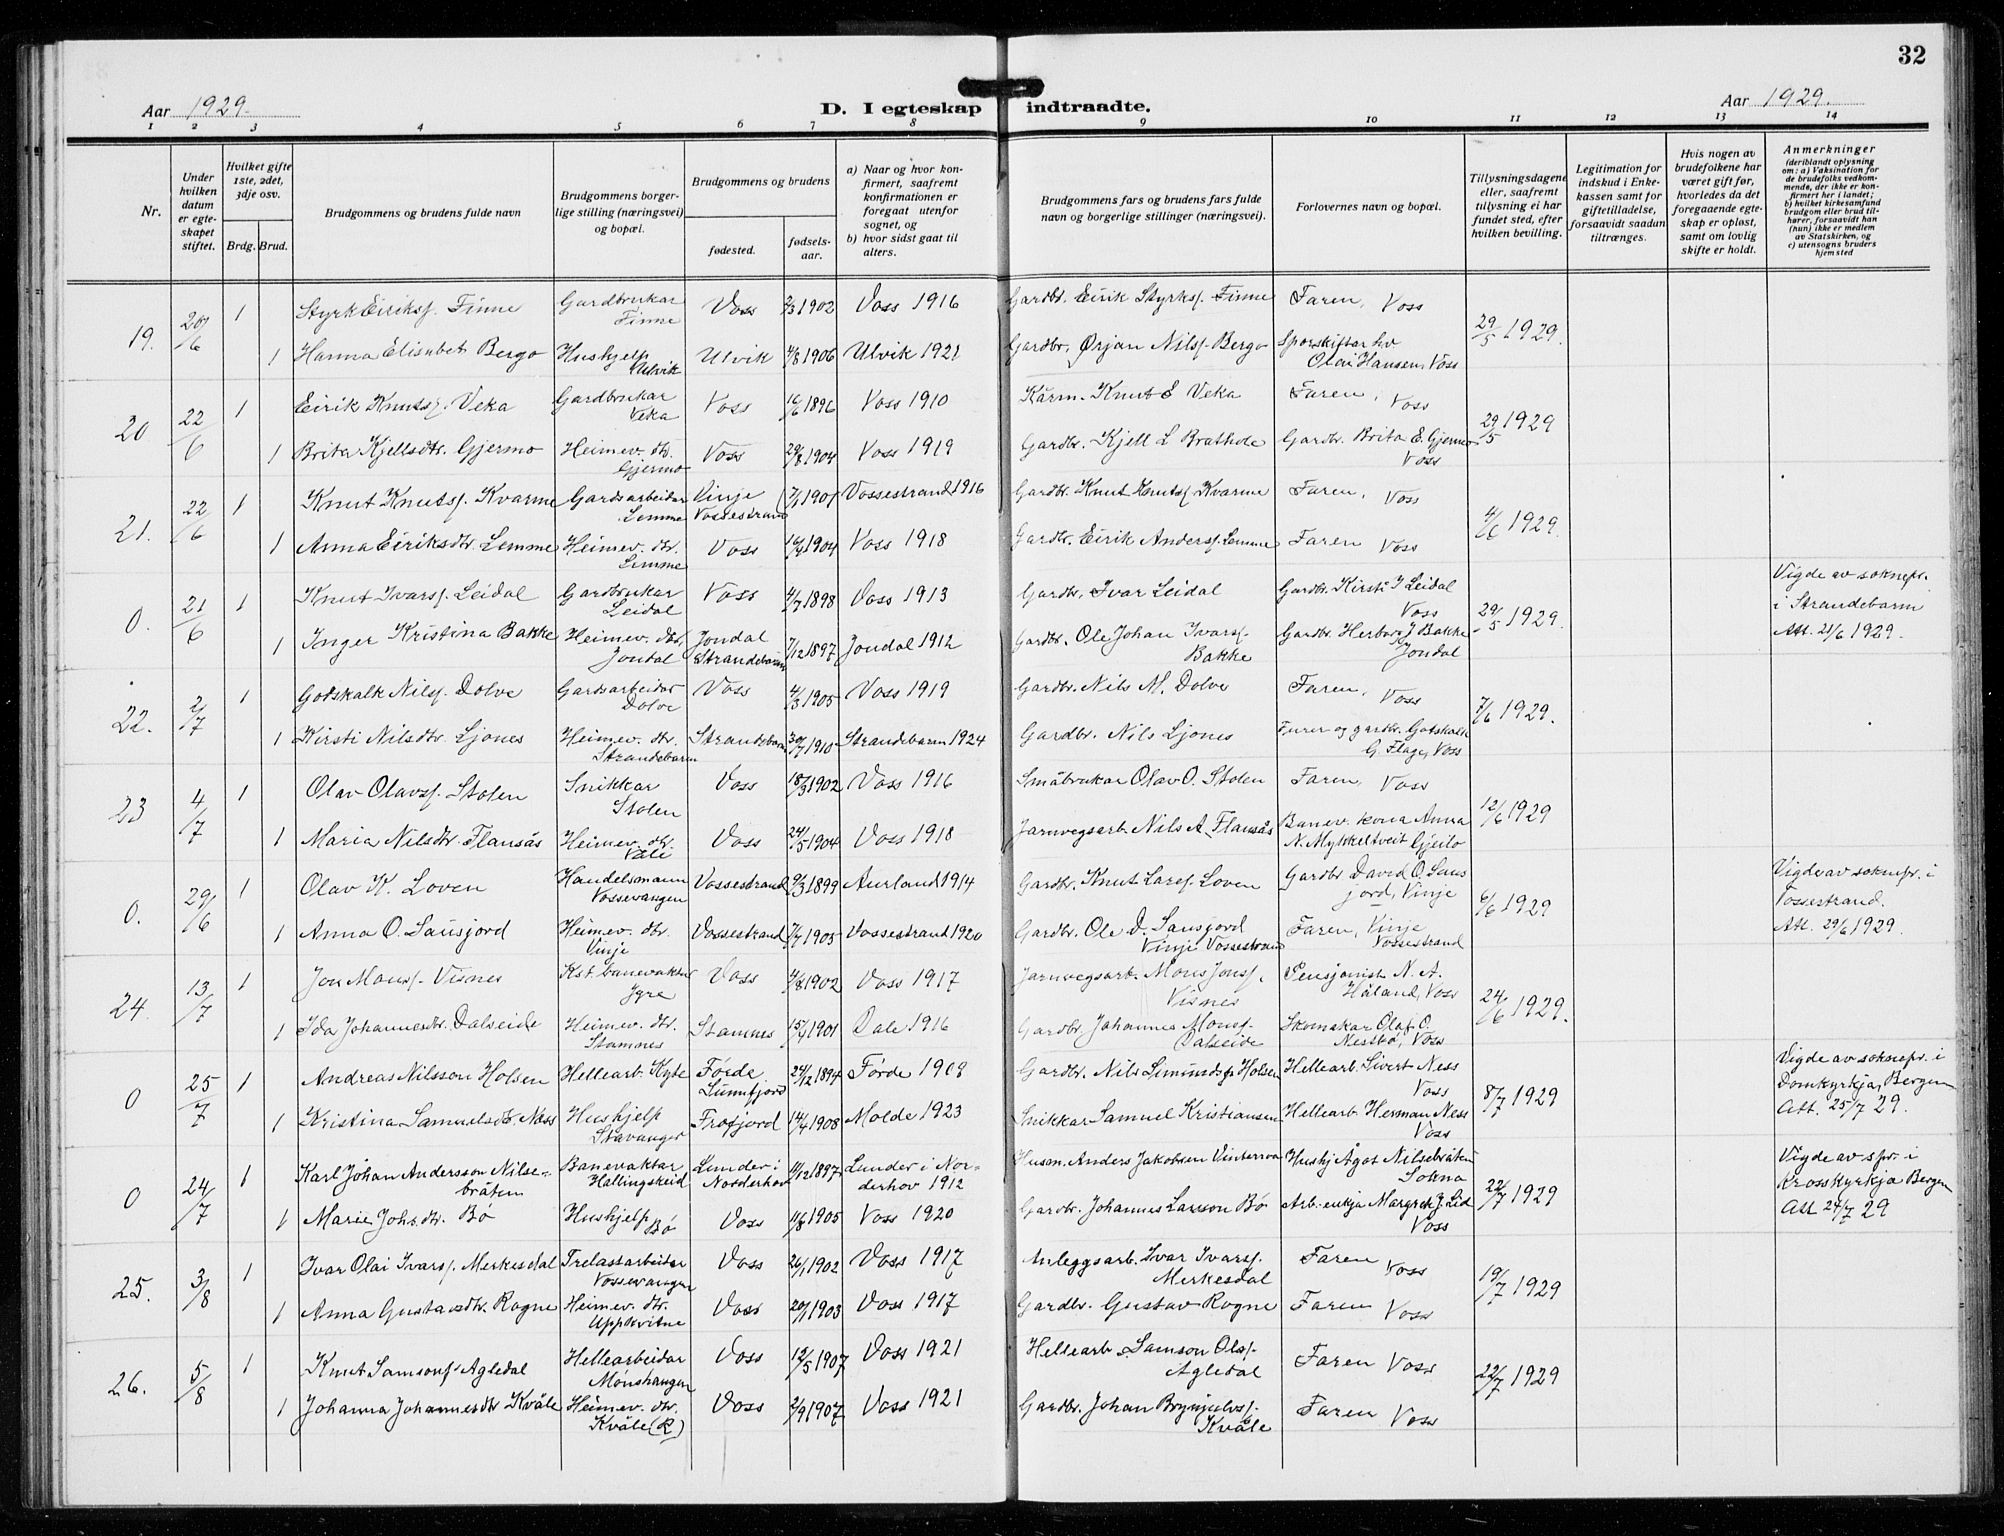 32
Aar 1929.
D. I egteskap indtraadte.
Aar 1929.
1 2 3 4 5 6 7 8 9 10 11 12 13 14
Nr.
Under hvilken datum er egteskapet stiftet.
Hvilket gifte 1ste, 2det, 3dje osv.
Brdg. Brud.
Brudgommens og brudens fulde navn
Brudgommens borgerlige stilling (næringsvei) og bopæl.
Brudgommens og brudens
fødested.
fødselsaar.
a) Naar og hvor konfirmert, saafremt konfirmationen er foregaat utenfor sognet, og
b) hvor sidst gaat til alters.
Brudgommens fars og brudens fars fulde navn og borgerlige stillinger (næringsvei).
Forlovernes navn og bopæl.
Tillysningsdagene eller, saafremt tillysning ei har fundet sted, efter hvilken bevilling.
Legitimation for indskud i Enkekassen samt for giftetilladelse, forsaavidt saadan tiltrænges.
Hvis nogen av brudefolkene har været gift før, hvorledes da det foregaaende egteskap er opløst, samt om lovlig skifte er holdt.
Anmerkninger
(deriblandt oplysning om: a) Vaksination for de brudefolks vedkommende, der ikke er konfirmert her i landet; b) hvilket kirkesamfund brudgom eller brud tilhører, forsaavidt han (hun) ikke er medlem av Statskirken, og c) utensogns bruders hjemsted
19. 20/6 1 Styrk Eiriksf. Finne Gardbrukar Finne Voss 2/3 1902 Voss 1916 Gardbr. Eirik Styrksf. Finne Faren, Voss 29/5 1929.
1 Hanna Elisabet Bergo Hushjelp Ulvik Ulvik 4/8 1906 Ulvik 1921 Gardbr. Ørjan Nilsf. Bergo Sporskiftar hv Olai Hansen, Voss
20 22/6 1 Eirik Knutsf. Veka Gardbrukar Veka Voss 1896 Voss 1910 Kårm. Knut E Veka Faren, Voss 29/5 1929
1 Brita Kjellsdtr. Gjermo Heimev. dtr. Gjermo Voss 1904 Voss 1919 Gardbr. Kjell L Brathole Gardbr. Brita E. Gjermo Voss
21. 22/6 1 Knut Knutsf. Kvarme Gardsarbeidar Lemme Vinje Vossestrand 1901 Vossestrand 1916 Gardbr. Knut Knutsf Kvarme Faren, Voss 4/6 1929.
1 Anna Eiriksdtr. Lemme Heimev. dtr. Lemme Voss 1904 Voss 1918 Gardbr. Eirik Andersf. Lemme Faren Voss
0. 21/6 1 Knut Ivarsf. Leidal Gardbrukar Leidal Voss 4/7 1898 Voss 1913 Gardbr. Ivar Leidal Gardbr. Kirsti I Leidal Voss 29/5 1929. Vigde av soknepr. i Strandebarm Att. 21/6 1929.
1 Inger Kristina Bakke Heimev. dtr. Jondal Jondal Strandebarm 7/12 1897 Jondal 1912 Gardbr. Ole Johan Ivarsf. Bakke Gardbr. Herborg J Bakke Jondal
22. 2/7 1 Gotskalk Nilsf. Dolve Gardsarbeidar Dolve Voss 4/3 1905 Voss 1919 Gardbr. Nils M. Dolve Faren, Voss 7/6 1929.
1 Kirsti Nilsdtr. Ljones Heimev. dtr. Strandebarm Strandebarm 30/7 1910 Strandebarm 1924 Gardbr. Nils Ljones Furer og gardbr. Gotskalk G. Flage, Voss
23 4/7 1 Olav Olavsf. Stolen Snikkar Stolen Voss 18/3 1902 Voss 1916 Småbrukar Olav O. Stolen Faren, Voss 12/6 1929
1 Maria Nilsdtr. Flansås Heimev. dtr. Væle Voss 24/5 1904 Voss 1918 Jarnvegsarb. Nils A. Flansås Banev. kona Anna N. Mykkeltveit Gjeilo
0. 29/6 1 Olav K. Loven Handelsmann Vossevangen Vossestrand 9/3 1899 Aurland 1914 Gardbr. Knut Larsf. Loven Gardbr David O. Sausjord, Vinje 6/6 1929 Vigde av soknepr. i Vossestrand. Att. 29/6 1929.
1 Anna O. Sausjord Heimev. dtr. Vinje Vossestrand 7/7 1905 Vossestrand 1920 Gardbr. Ole D. Sausjord Vinje Vossestrand Faren, Vinje Vossestrand
24. 13/7 1 Jon Monsf. Visnes Kst. banevaktar Ygre Voss 4/8 1902 Voss 1917 Jarnvegsarb. Mons Jonsf. Visnes Pensjonist N. A. Håland, Voss 24/6 1929.
1 Ida Johannesdtr. Dalseide Heimev. dtr. Stamnes Stamnes 15/1 1901 Dale 1916 Gardbr. Johannes Monsf. Dalseide Skomakar Olaf O. Nesstbø, Voss
0 25/7 1 Andreas Nilsson Holsen Hellearb. Kyte Førde Sunnfjord 24/12 1894 Førde 1908 Gardbr. Nils Simundsf. Holsen Hellearb. Sivert Ness Voss 8/7 1929 Vigde av soknepr. i Domkyrkja, Bergen Att. 25/7 29.
1 Kristina Samuelsdtr. Ness Hushjelp Stavanger Frafjord 14/4 1908 Molde 1923 Snikkar Samuel Kristiansen Hellearb. Herman Ness Voss
0 24/7 1 Karl Johan Andersson Nilsebråten Banevaktar Hallingskeid Lunder i Norderhov 11/12 1897 Lunder i Norderhov 1912 Husm. Anders Jakobsen Vinterroa Hushj Ågot Nilsebråten Sokna 22/7 1929 Vigde av spr. i Krosskyrkja Bergen Att 24/7 29
1 Marie Johs.dtr. Bø Hushjelp Bø Voss 11/8 1905 Voss 1920 Gardbr. Johannes Larsson Bø Arb. enkja Margrete J. Lid Voss
25. 3/8 1 Ivar Olai Ivarsf. Merkesdal Trelastarbeidar Vossevangen Voss 26/1 1902 Voss 1917 Anleggsarb. Ivar Ivarsf. Merkesdal Faren Voss 19/7 1929
1 Anna Gustavsdtr. Rogne Heimev. dtr. Uppkvitne Voss 20/1 1903 Voss 1917 Gardbr. Gustav Rogne Faren Voss
26. 5/8 1 Knut Samsonsf. Agledal Hellearbeidar Mønshaugen Voss 12/5 1907 Voss 1921 Hellearb. Samson Olsf. Agledal Faren Voss 22/7 1929
1 Johanna Johannesdtr Kvåle Heimev. dtr. Kvåle (R) Voss 2/9 1907 Voss 1921 Gardbr. Johan Brynjulvsf. Kvåle Faren Voss